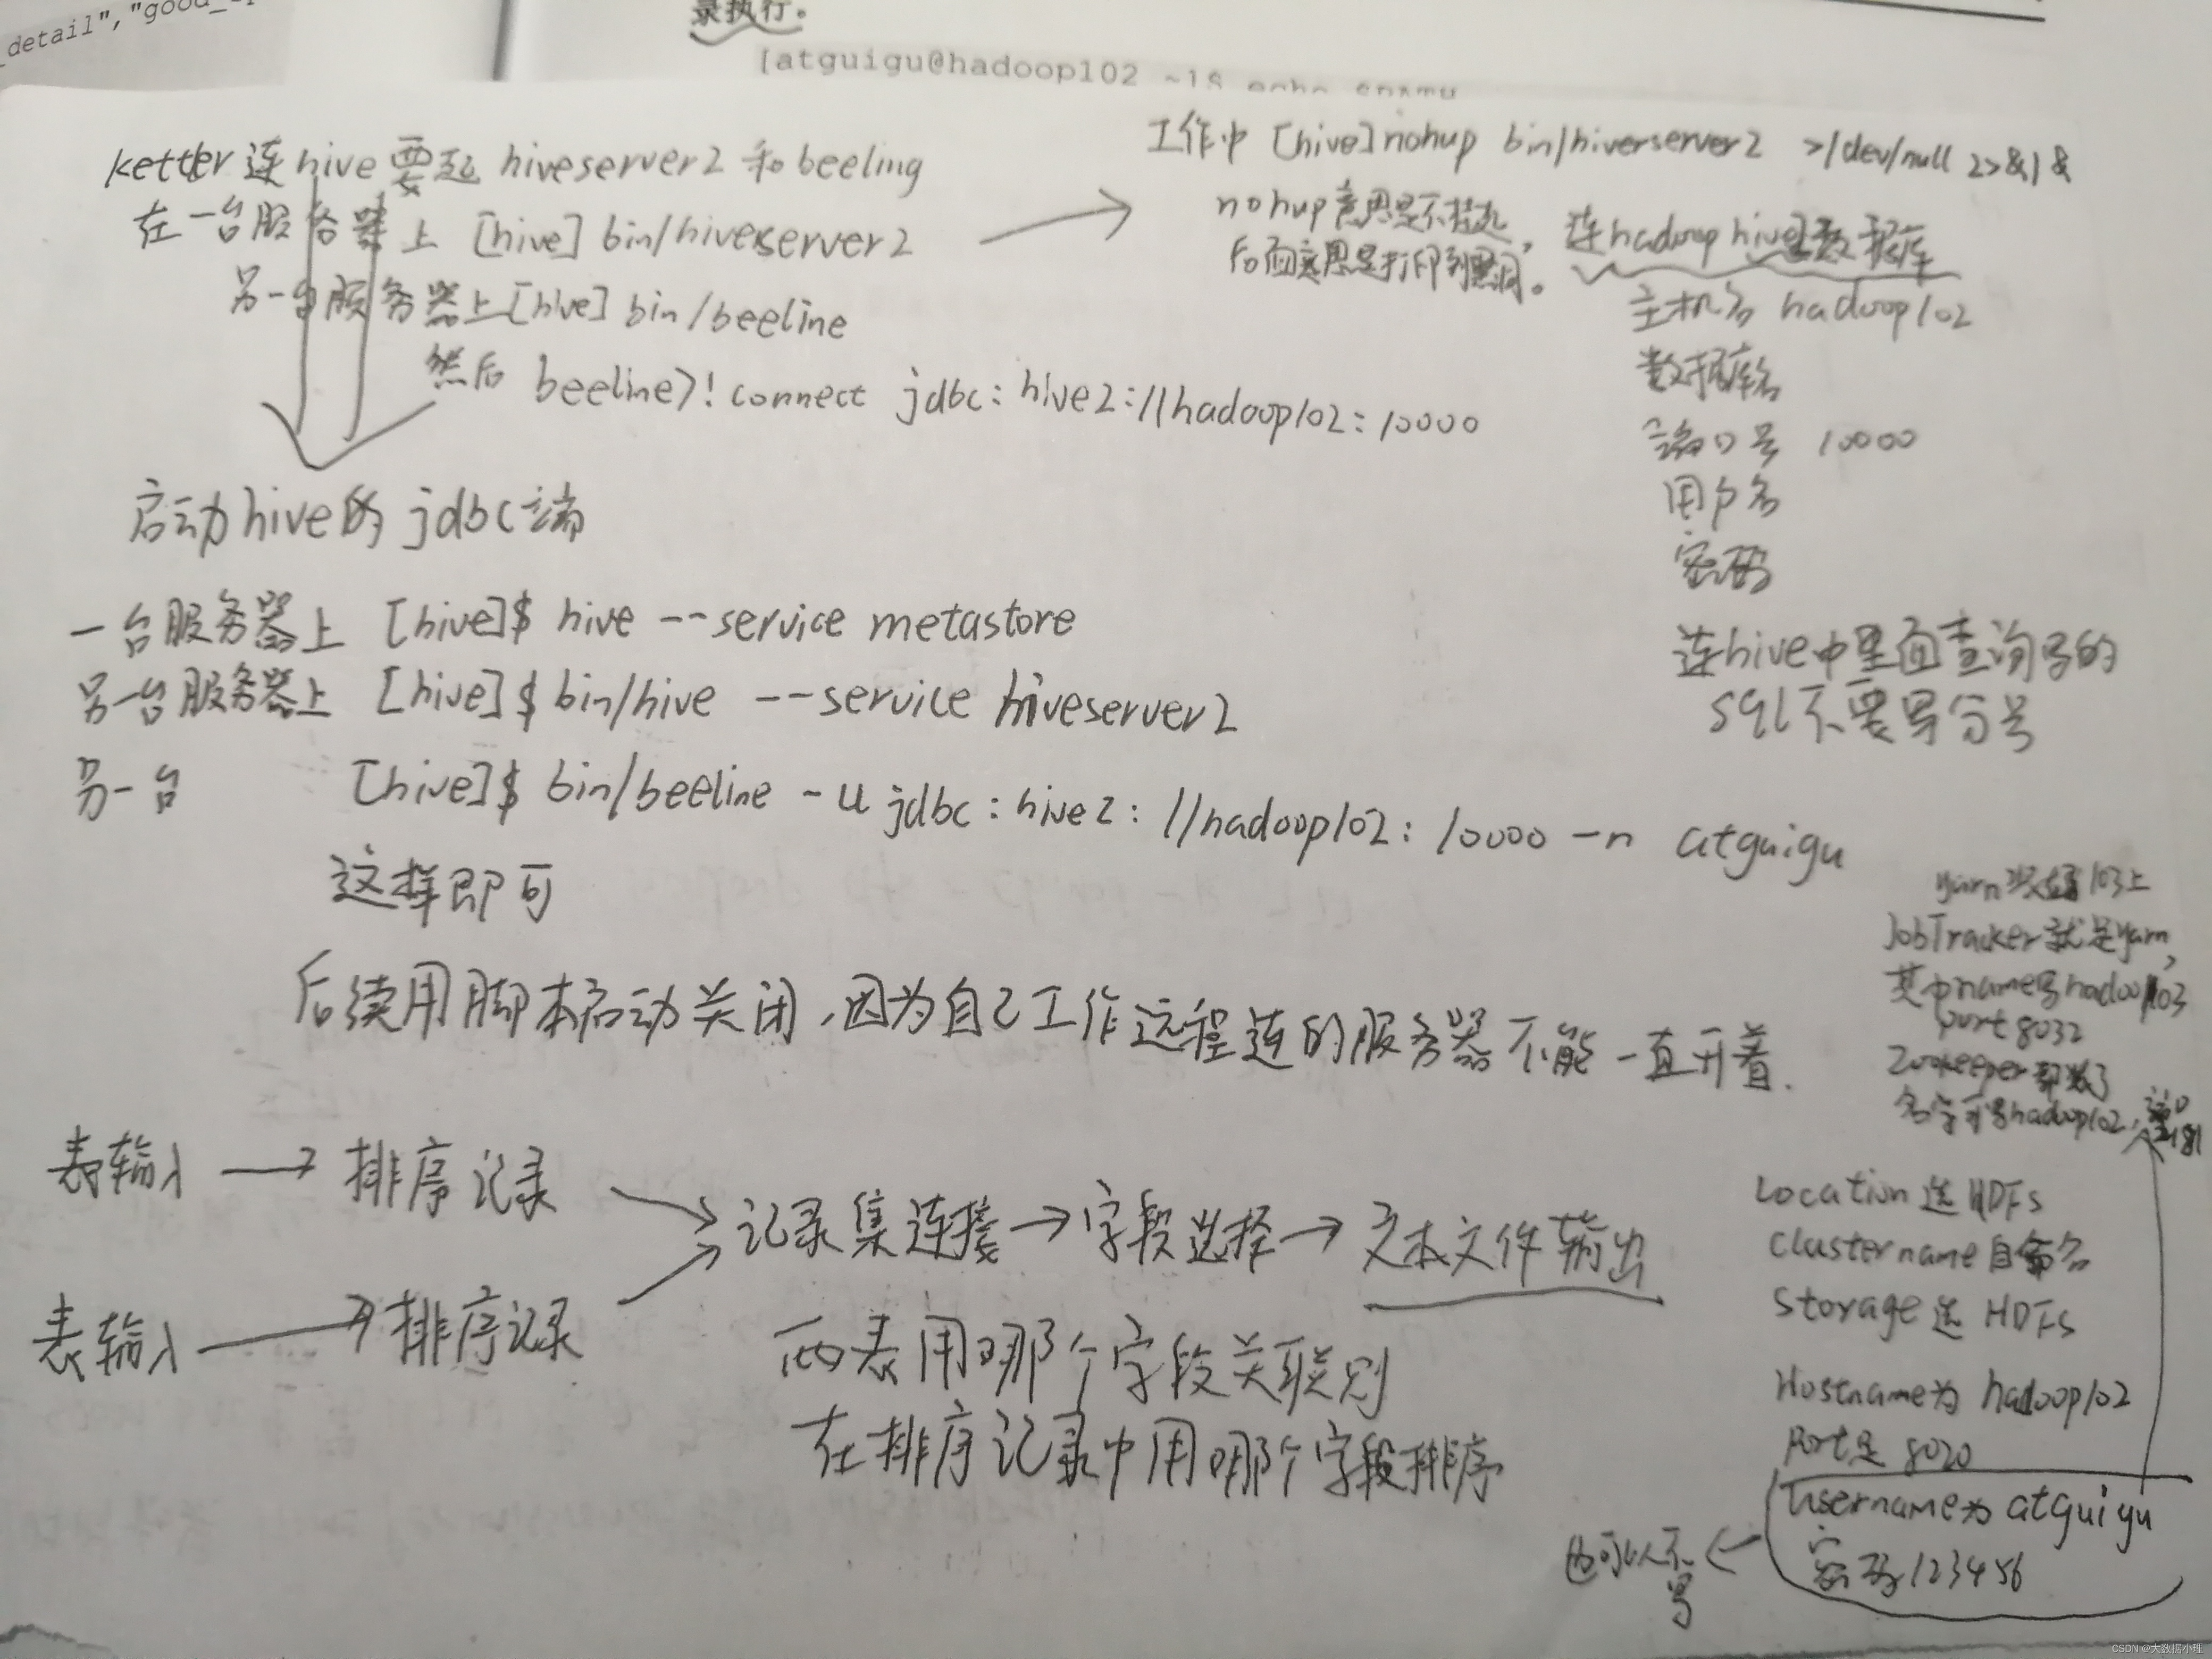 _detail","good_
录执行。
[atguigu@hadoop102 ~]$ echo
ketter连hive要起 hiveserver2 和 beeling
在一台服务器上 [hive] bin/hiveserver2
另一台服务器上 [hive] bin/beeline
然后 beeline>! connect jdbc:hive2://hadoop102:10000
工作中 [hive] nohup bin/hiverserver2 >/dev/null 2>&1 &
nohup意思是不挂起,
后面意思是打印到黑洞。
连hadoop hive2数据库
主机名 hadoop102
数据库名
端口号 10000
用户名
密码
连hive中里面查询写的
sql不要写分号
启动hive的jdbc端
一台服务器上 [hive]$ hive --service metastore
另一台服务器上 [hive]$ bin/hive --service hiveserver2
另一台 [hive]$ bin/beeline -u jdbc:hive2://hadoop102:10000 -n atguigu
这样即可
后续用脚本启动关闭,因为自己工作远程连的服务器不能一直开着.
yarn 103上
JobTracker就是yarn,
其中name写hadoop103
port 8032
Zookeeper
名字可写hadoop102,
表输入 → 排序记录
记录集连接 → 字段选择 → 文本文件输出
表输入 → 排序记录
两表用哪个字段关联则
在排序记录中用哪个字段排序
Location选HDFS
Clustername自命名
Storage选 HDFS
Hostname为 hadoop102
Port是 8020
Username为 atguigu
密码123456
也可以不
写
CSDN @大数据小理